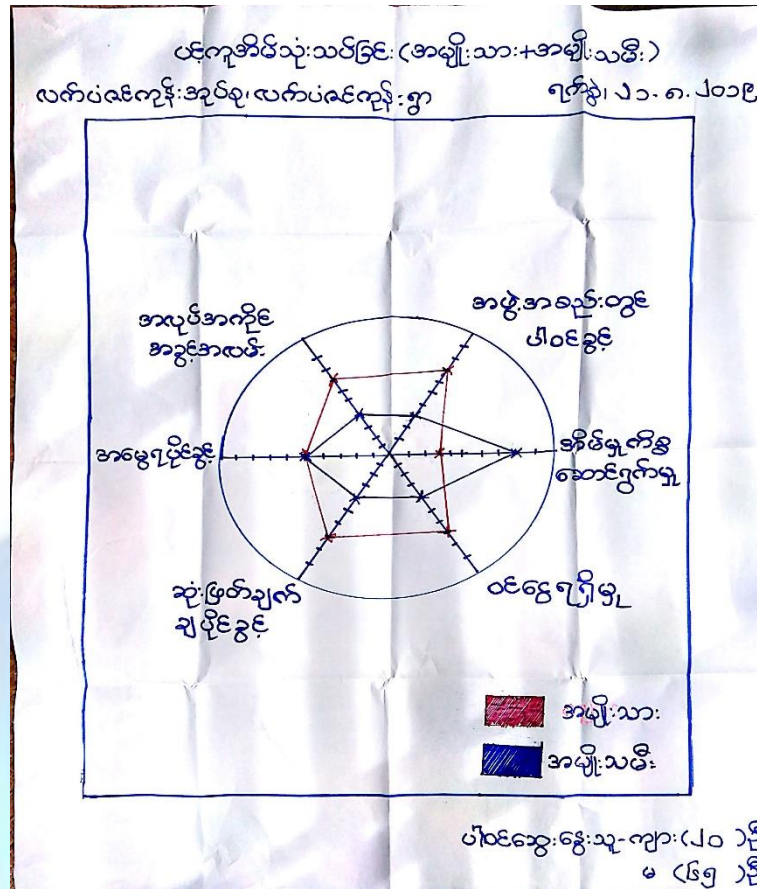 ပင့်ကူအိမ်သုံးသပ်ခြင်း (အမျိုးသား+အမျိုးသမီး)
လက်ပံဇင်ကုန်းအုပ်စု၊ လက်ပံဇင်ကုန်းရွာ
ရက်စွဲ၊ ၂၁.၈.၂၀၁၉
အလုပ်အကိုင်
အခွင့်အလမ်း
အဖွဲ့အစည်းတွင်
ပါဝင်ခွင့်
အမွေရပိုင်ခွင့်
အိမ်မှုကိစ္စ
ဆောင်ရွက်မှု
ဆုံးဖြတ်ချက်
ချပိုင်ခွင့်
ဝင်ငွေရရှိမှု
အမျိုးသား
အမျိုးသမီး
ပါဝင်ဆွေးနွေးသူ-ကျား (၂၀)ဦး
မ (၆၅)ဦး